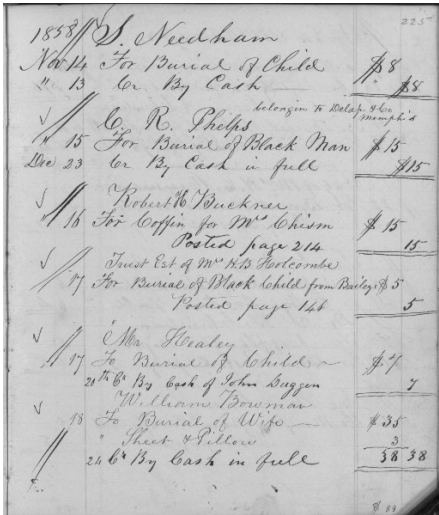 225
1858 S. Needham
Nov 14 For Burial of Child $8
" 13 Cr By Cash $8
belongin to Delap & Co
Memphis
C. R. Phelps
" 15 For Burial of Black Man $15
Dec 23 Cr By Cash in full $15
Robert H Buckner
" 16 For Coffin for Mrs Chism $15
Posted page 214 15
Trust Est of Mrs H.B Holcombe
" 17 For Burial of Black Child from Baileys $5
Posted page 146 5
Mr Healey
" 17 To Burial of Child $7
20th Cr By Cash of John Duggen 7
William Bowman
" 18 To Burial of Wife $35
" Sheet & Pillow 3
24 Cr By Cash in full 38 38